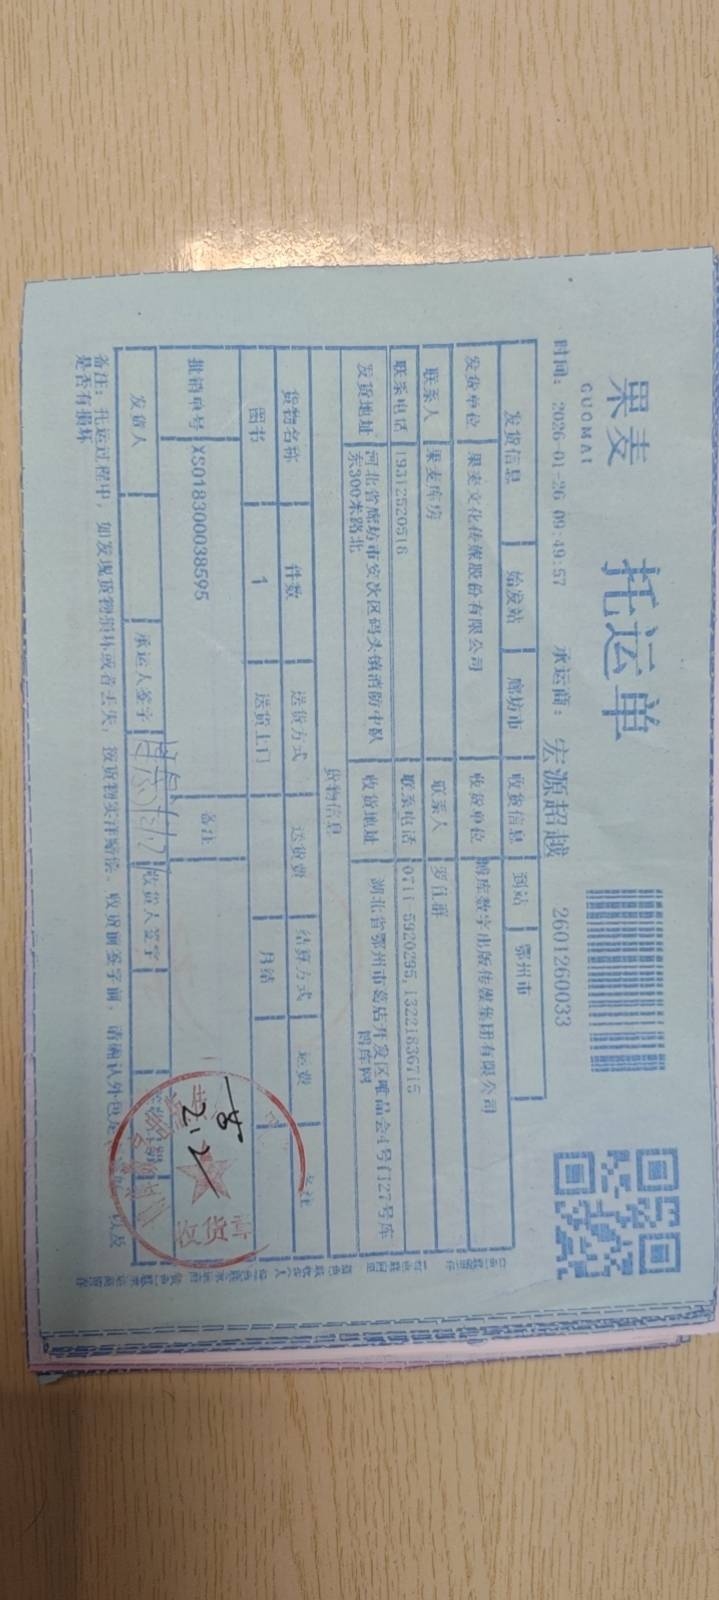 果麦
GUOMAI
托运单
时间: 2026-01-26 09:49:57 承运商: 宏源超越 2601260033
发货信息 始发站 廊坊市 收货信息 到站 鄂州市
发货单位 果麦文化传媒股份有限公司 收货单位 博库数字出版传媒集团有限公司
联系人 果麦库房 联系人 罗伍群
联系电话 19312520516 联系电话 0711-5920295,13221836715
发货地址 河北省廊坊市安次区码头镇消防中队
东300米路北
收货地址 湖北省鄂州市葛店开发区唯品会4号门27号库
博库网
货物信息
货物名称 件数 送货方式 送货费 结算方式 运费 备注
图书 1 送货上门 月结
批销单号 XS018300038595 备注
一件
2.2
收货章
发货人 承运人签字 收货人签字
备注: 托运过程中, 如发现货物损坏或者丢失, 按货物实洋赔偿。收货前签字前, 请确认外包是 以及
是否有损坏